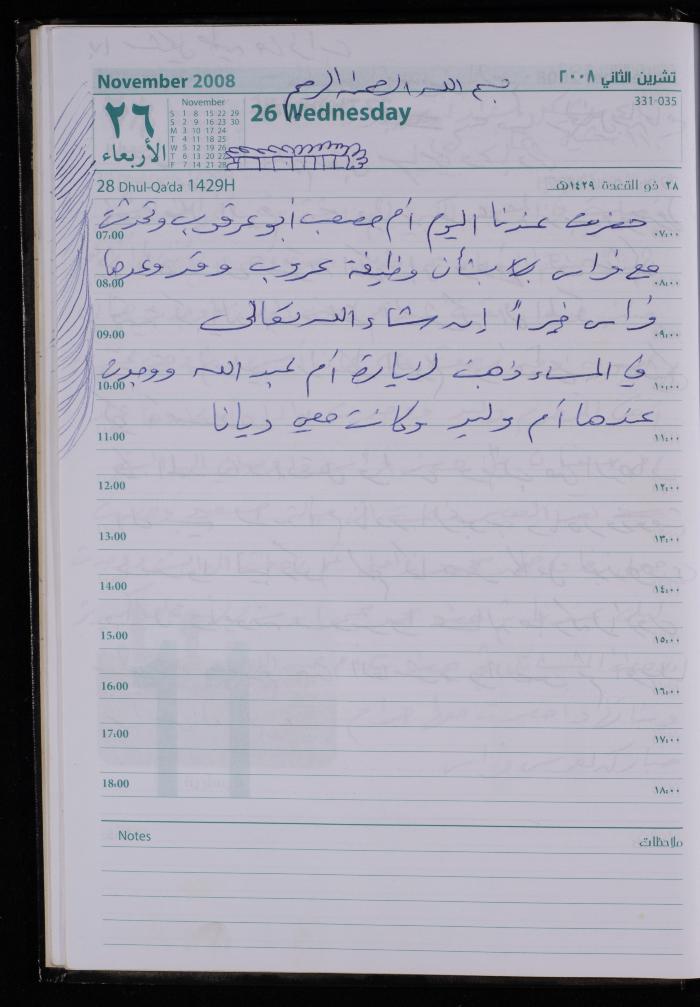 November 2008 بسم الله الرحمن الرحيم تشرين الثاني ٢٠٠٨
٢٦ November 26 Wednesday 331-035
S 1 8 15 22 29
S 2 9 16 23 30
M 3 10 17 24
T 4 11 18 25
W 5 12 19 26
T 6 13 20 27
F 7 14 21 28
الأربعاء
28 Dhul-Qa'da 1429H ٢٨ ذو القعدة ١٤٢٩هـ
حضرت عندنا اليوم أم مصعب أبو عرقوب وتحدثت
07:00 ٠٧:٠٠
مع فراس بشأن وظيفة عروب وقد وعدها
08:00 ٠٨:٠٠
فراس خيراً إن شاء الله تعالى
09:00 ٠٩:٠٠
في المساء ذهبت لزيارة أم عبد الله ووجدت
10:00 ١٠:٠٠
عندها أم وليد وكانت معي ديانا
11:00 ١١:٠٠
12:00 ١٢:٠٠
13:00 ١٣:٠٠
14:00 ١٤:٠٠
15:00 ١٥:٠٠
16:00 ١٦:٠٠
17:00 ١٧:٠٠
18:00 ١٨:٠٠
Notes ملاحظات